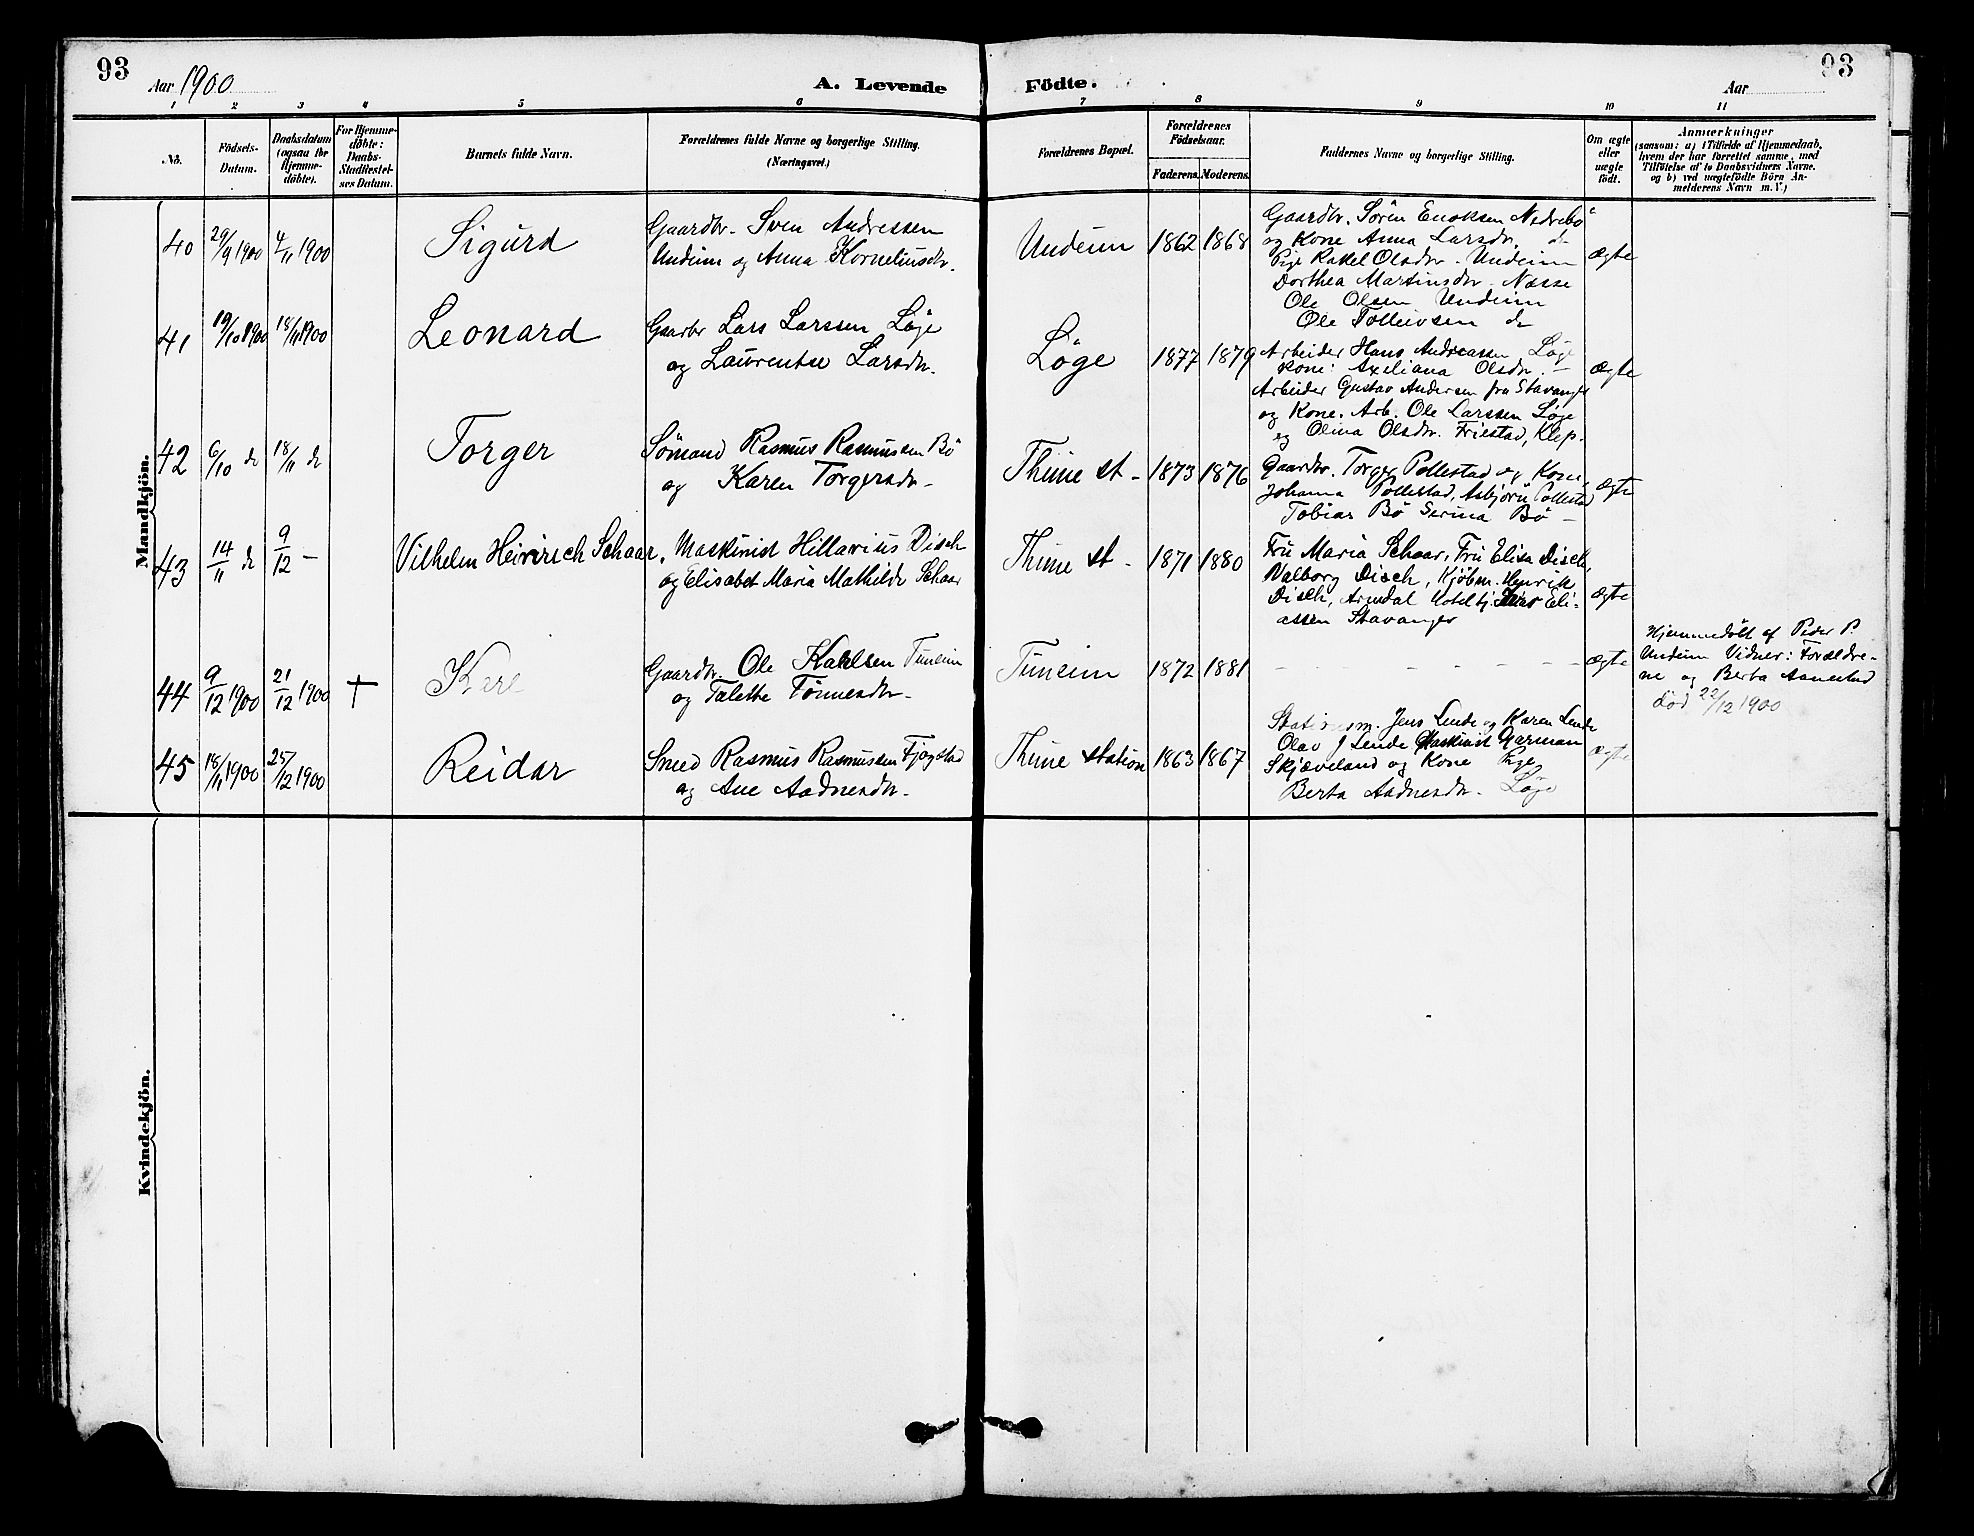 93
Aar 1900
A. Levende
Födte.
Aar
93
1 2 3 4 5 6 7 8 9 10 11
No.
Födsels-
Datum.
Daabsdatum
(ogsaa for
Hjemme-
döbte).
For Hjemme-
döbte:
Daabs-
Stadfæstel-
ses Datum.
Barnets fulde Navn.
Forældrenes fulde Navne og borgerlige Stilling.
(Næringsvei.)
Forældrenes Bopæl.
Forældrenes
Födselsaar.
Faderens. Moderens.
Faddernes Navne og borgerlige Stilling.
Om ægte
eller
uægte
født.
Anmærkninger
(saasom: a) i Tilfælde af Hjemmedaab,
hvem der har forrettet samme, med
Tilföielse af to Daabsvidners Navne.
og b) ved uægtefödte Börn An-
melderens Navn m. V.)
Mandkjön.
40
29/9 1900
4/11 1900
Sigurd
Gaardbr. Sven Andressen
Undeim og Anna Korneliusdr.
Undeim
1862 1868
Gaardbr. Sören Enoksen Nedrebö
og Kone Anna Larsdr. do
Pige Rakel Olsdtr. Undeim
Dorthea Martinsdtr. Næsse
Ole Olsen Undeim
Ole Tolleivsen do
ægte
41
19/10 1900
18/11 1900
Leonard
Gaarbr Lars Larssen Löge
og Laurentse Larsdr.
Löge
1877 1879
Arbeider Hans Andreassen Löge
Kone: Axeliana Olsdr. —
Arbeider Gustav Andersen fra Stavanger
og Kone. Arb. Ole Larssen Löge
og Olina Olsdr. Friestad, Klep.
ægte
42
6/10 do
18/11 do
Torger
Sömand Rasmus Rasmussen Bö
og Karen Torgersdr.
Thime st.
1873 1876
Gaardbr. Torger Pollestad og Kone,
Johanna Pollestad, Asbjörn Pollestad
Tobias Bö Serina Bö —
ægte
43
14/11 do
9/12 —
Vilhelm Heinrich Schaar.
Maskinist Hillarius Disch
og Elisabet Maria Mathilde Schaar
Thime st.
1871 1880
Fru Maria Schaar, Fru Elisa Disch,
Valborg Disch, Kjöbm. Henrik
Disch, Arendal Hotelbj. Eli-
assen Stavanger
ægte
44
9/12 1900
21/12 1900
†
Gaardbr. Ole Tuneim
og Talette Tönnesdr.
Tuneim
1872 1881
— — — — — —
ægte
Hjemmedöbt af Peder P.
Undeim Vidner: Forældre-
ne og Berta Aanestad
död 22/12 1900
45
18/11 1900
25/12 1900
Reidar
Smed Rasmus Rasmussen Fjogstad
og Ane Aadnesdr.
Thime station
1863 1867
Stationsm. Jens Lende og Karen Lende
Olav J Lende Maskinist Garman
Skjæveland og Kone Pige
Berta Aadnesdr. Löge
ægte
Kvindekjön.